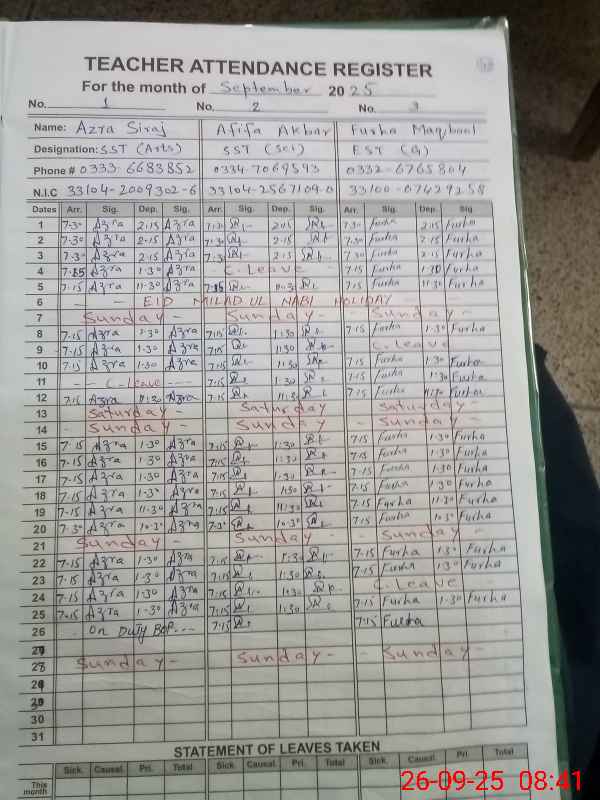 TEACHER ATTENDANCE REGISTER
For the month of September 2025
No. 1 No. 2 No. 3
Name: Azra Siraj Afifa Akbar Furha Maqbool
Designation: SST (Arts) SST (Sci) EST (G)
Phone # 0333-6683852 0334-7069593 0332-6765804
N.I.C 33104-2009302-6 33104-2567109-0 33100-07429258
Dates Arr. Sig. Dep. Sig. Arr. Sig. Dep. Sig. Arr. Sig. Dep. Sig
1 7-30 Azra 2-15 Azra 7-30 2-15 7-30 Furha 2-15 Furha
2 7-30 Azra 2-15 Azra 7-30 2-15 7-30 Furha 2-15 Furha
3 7-30 Azra 2-15 Azra 7-30 2-15 7-30 Furha 2-15 Furha
4 7-15 Azra 1-30 Azra - C. Leave - 7-15 Furha 1-30 Furha
5 7-15 Azra 11-30 Azra 7-15 7-15 Furha 11-30 Furha
6 - - EID MILAD UL NABI HOLIDAY - -
7 Sunday - Sunday - - Sunday -
8 7-15 Azra 1-30 Azra 7-15 1-30 7-15 Furha 1-30 Furha
9 7-15 Azra 1-30 Azra 7-15 1-30 C. Leave
10 7-15 Azra 1-30 Azra 7-15 1-30 7-15 Furha 1-30 Furha
11 - - C-Leave - - - 7-15 1-30 7-15 Furha 1-30 Furha
12 7-15 Azra Azra 7-15 11-30 7-15 Furha 11-30 Furha
13 Saturday - Saturday Saturday -
14 - Sunday - - Sunday - - Sunday -
15 7-15 Azra 1-30 Azra 7-15 1-30 7-15 Furha 1-30 Furha
16 7-15 Azra 1-30 Azra 7-15 1-30 7-15 Furha 1-30 Furha
17 7-15 Azra 1-30 Azra 7-15 1-30 7-15 Furha 1-30 Furha
18 7-15 Azra 1-30 Azra 7-15 1-30 7-15 Furha 1-30 Furha
19 7-15 Azra 11-30 Azra 7-15 11-30 7-15 Furha 11-30 Furha
20 7-30 Azra 10-30 Azra 7-30 10-30 7-15 Furha 10-30 Furha
21 Sunday - Sunday - - Sunday -
22 7-15 Azra 1-30 Azra 7-15 1-30 7-15 Furha 1-30 Furha
23 7-15 Azra 1-30 Azra 7-15 1-30 7-15 Furha 1-30 Furha
24 7-15 Azra 1-30 Azra 7-15 1-30 C. Leave
25 7-15 Azra 1-30 Azra 7-15 1-30 7-15 Furha 1-30 Furha
26 - On Duty - - - 7-15 7-15 Furha
27
28 Sunday - Sunday - - Sunday -
29
30
31
STATEMENT OF LEAVES TAKEN
Sick. Causal. Pri. Total Sick. Causal. Pri. Total Sick. Causal. Pri. Total
This month
26-09-25 08:41